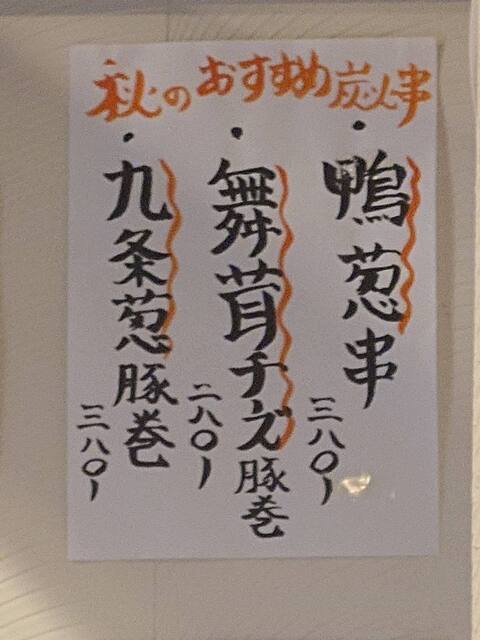 秋のおすすめ炭火串
・鴨葱串
三八〇ー
・舞茸チーズ豚巻
二八〇ー
・九条葱豚巻
三八〇ー